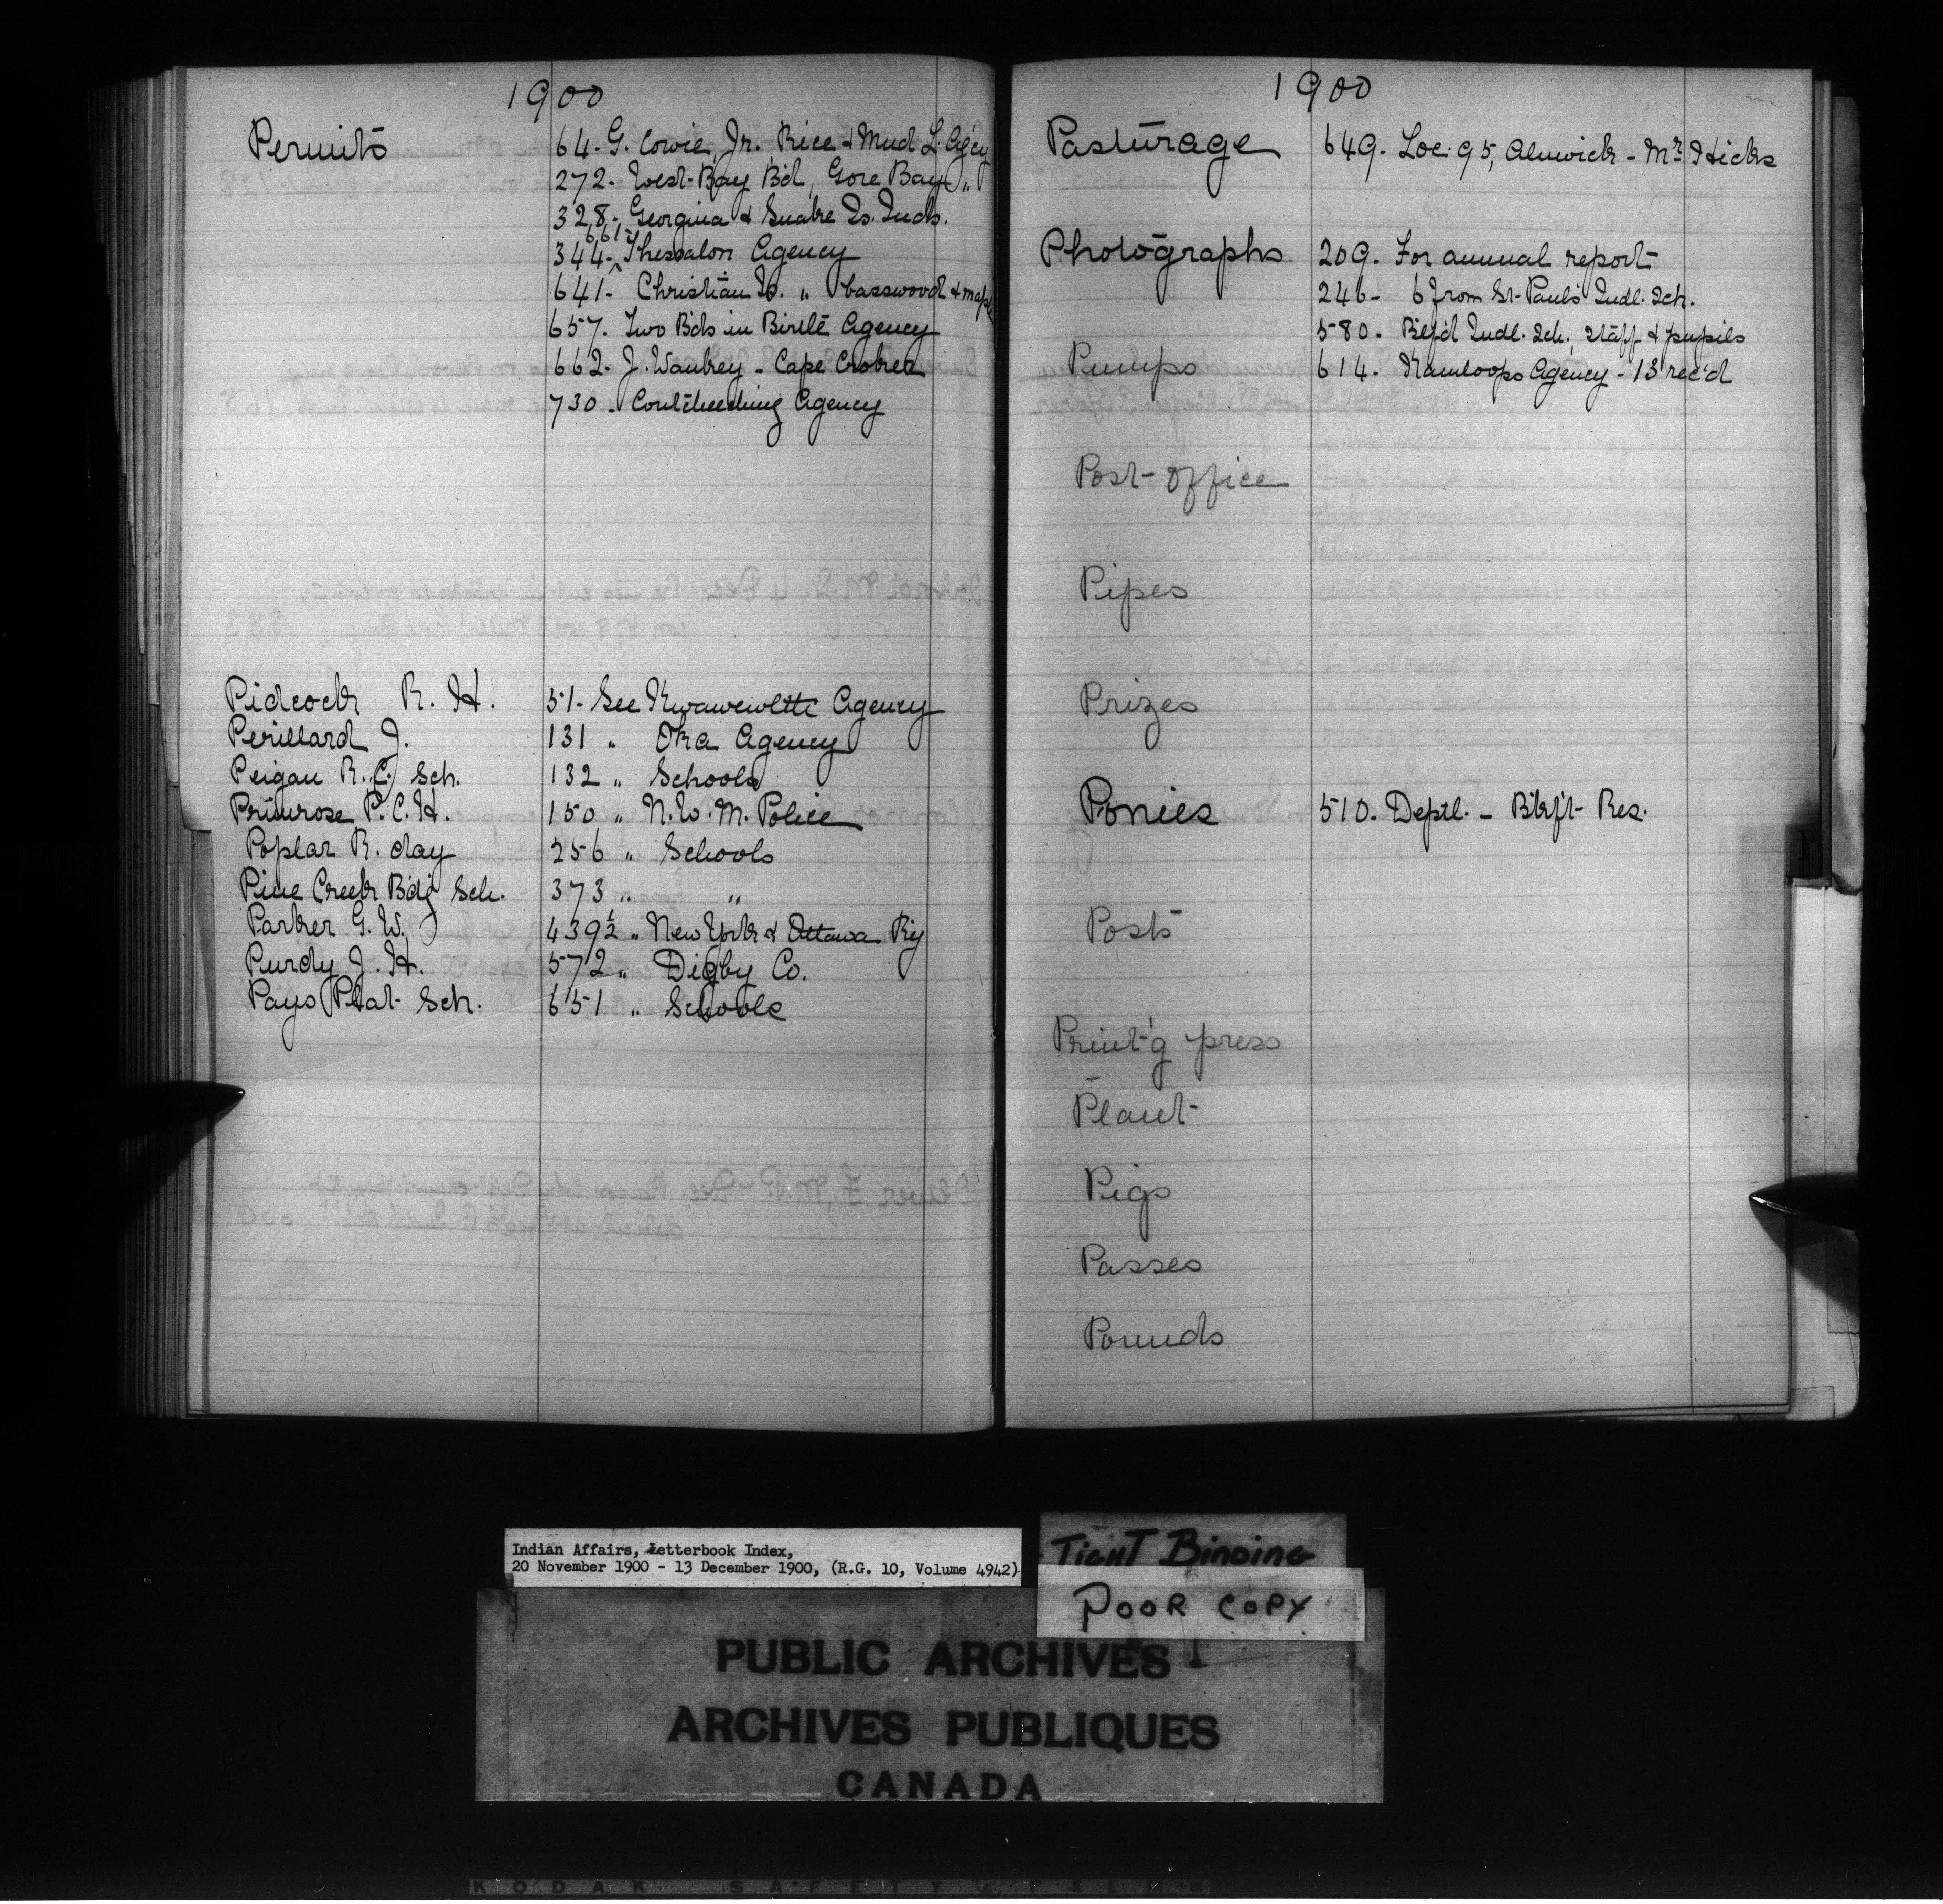 1900
Permits 64. G. Cowie, Jr. Rice & Mud L. Agcy
272. West Bay Bd, Gore Bay "
328. Georgina & Snake Is. Inds.
661
344. Thessalon Agency
641. Christian Is. " basswood & maple
657. Two Bds in Birtle Agency
662. J. Waubey - Cape Croker
730. Coutcheeching Agency
Pidcock R. H. 51. See Kwawewlth Agency
Perillard J. 131 " Oka Agency
Peigan R. C. Sch. 132 " Schools
Primrose P. C. H. 150 " N. W. M. Police
Poplar R. day 256 " Schools
Pine Creek Bdg Sch. 373 " "
Parker G. W. 439½ " New York & Ottawa Ry
Purdy J. H. 572 " Digby Co.
Pays Plat Sch. 651 " Schools
1900
Pasturage 649. Loc. 95, Alnwick - Mr Hicks
Photographs 209. For annual report
246 - 6 from St. Paul's Indl. Sch.
580. Btlf'd Indl. Sch., staff & pupils
Pumps 614. Kamloops Agency - 13 rec'd
Post-office
Pipes
Prizes
Ponies 510. Deptl. - Blkft Res.
Posts
Print'g press
Plant
Pigs
Passes
Pounds
P
Indian Affairs, Letterbook Index,
20 November 1900 - 13 December 1900, (R.G. 10, Volume 4942)
TIGHT BINDING
POOR COPY
PUBLIC ARCHIVES
ARCHIVES PUBLIQUES
CANADA
KODAK SAFETY FILM